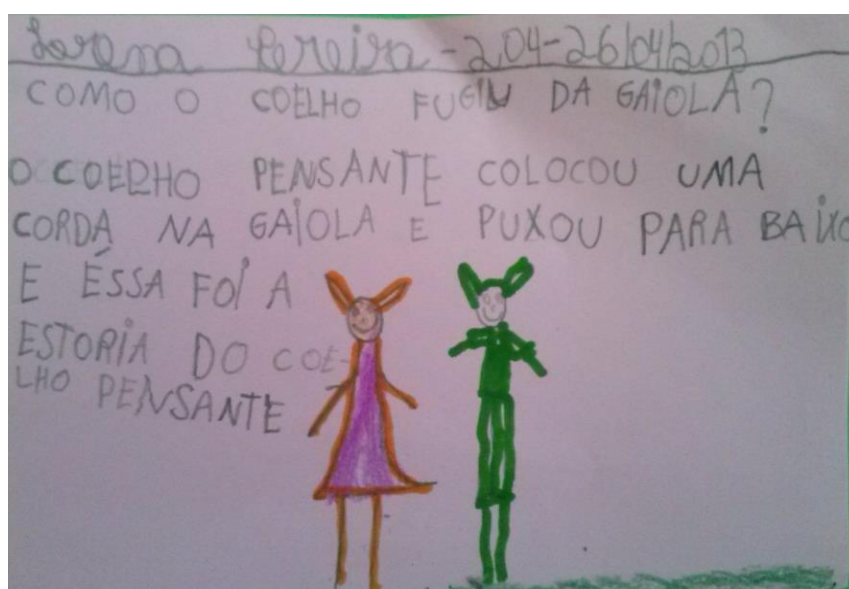 Lorena Pereira-204-26/04/2013
COMO O COELHO FUGIU DA GAIOLA?
O COELHO PENSANTE COLOCOU UMA
CORDA NA GAIOLA E PUXOU PARA BAIXO
E ÉSSA FOI A
ESTORIA DO COE-
LHO PENSANTE